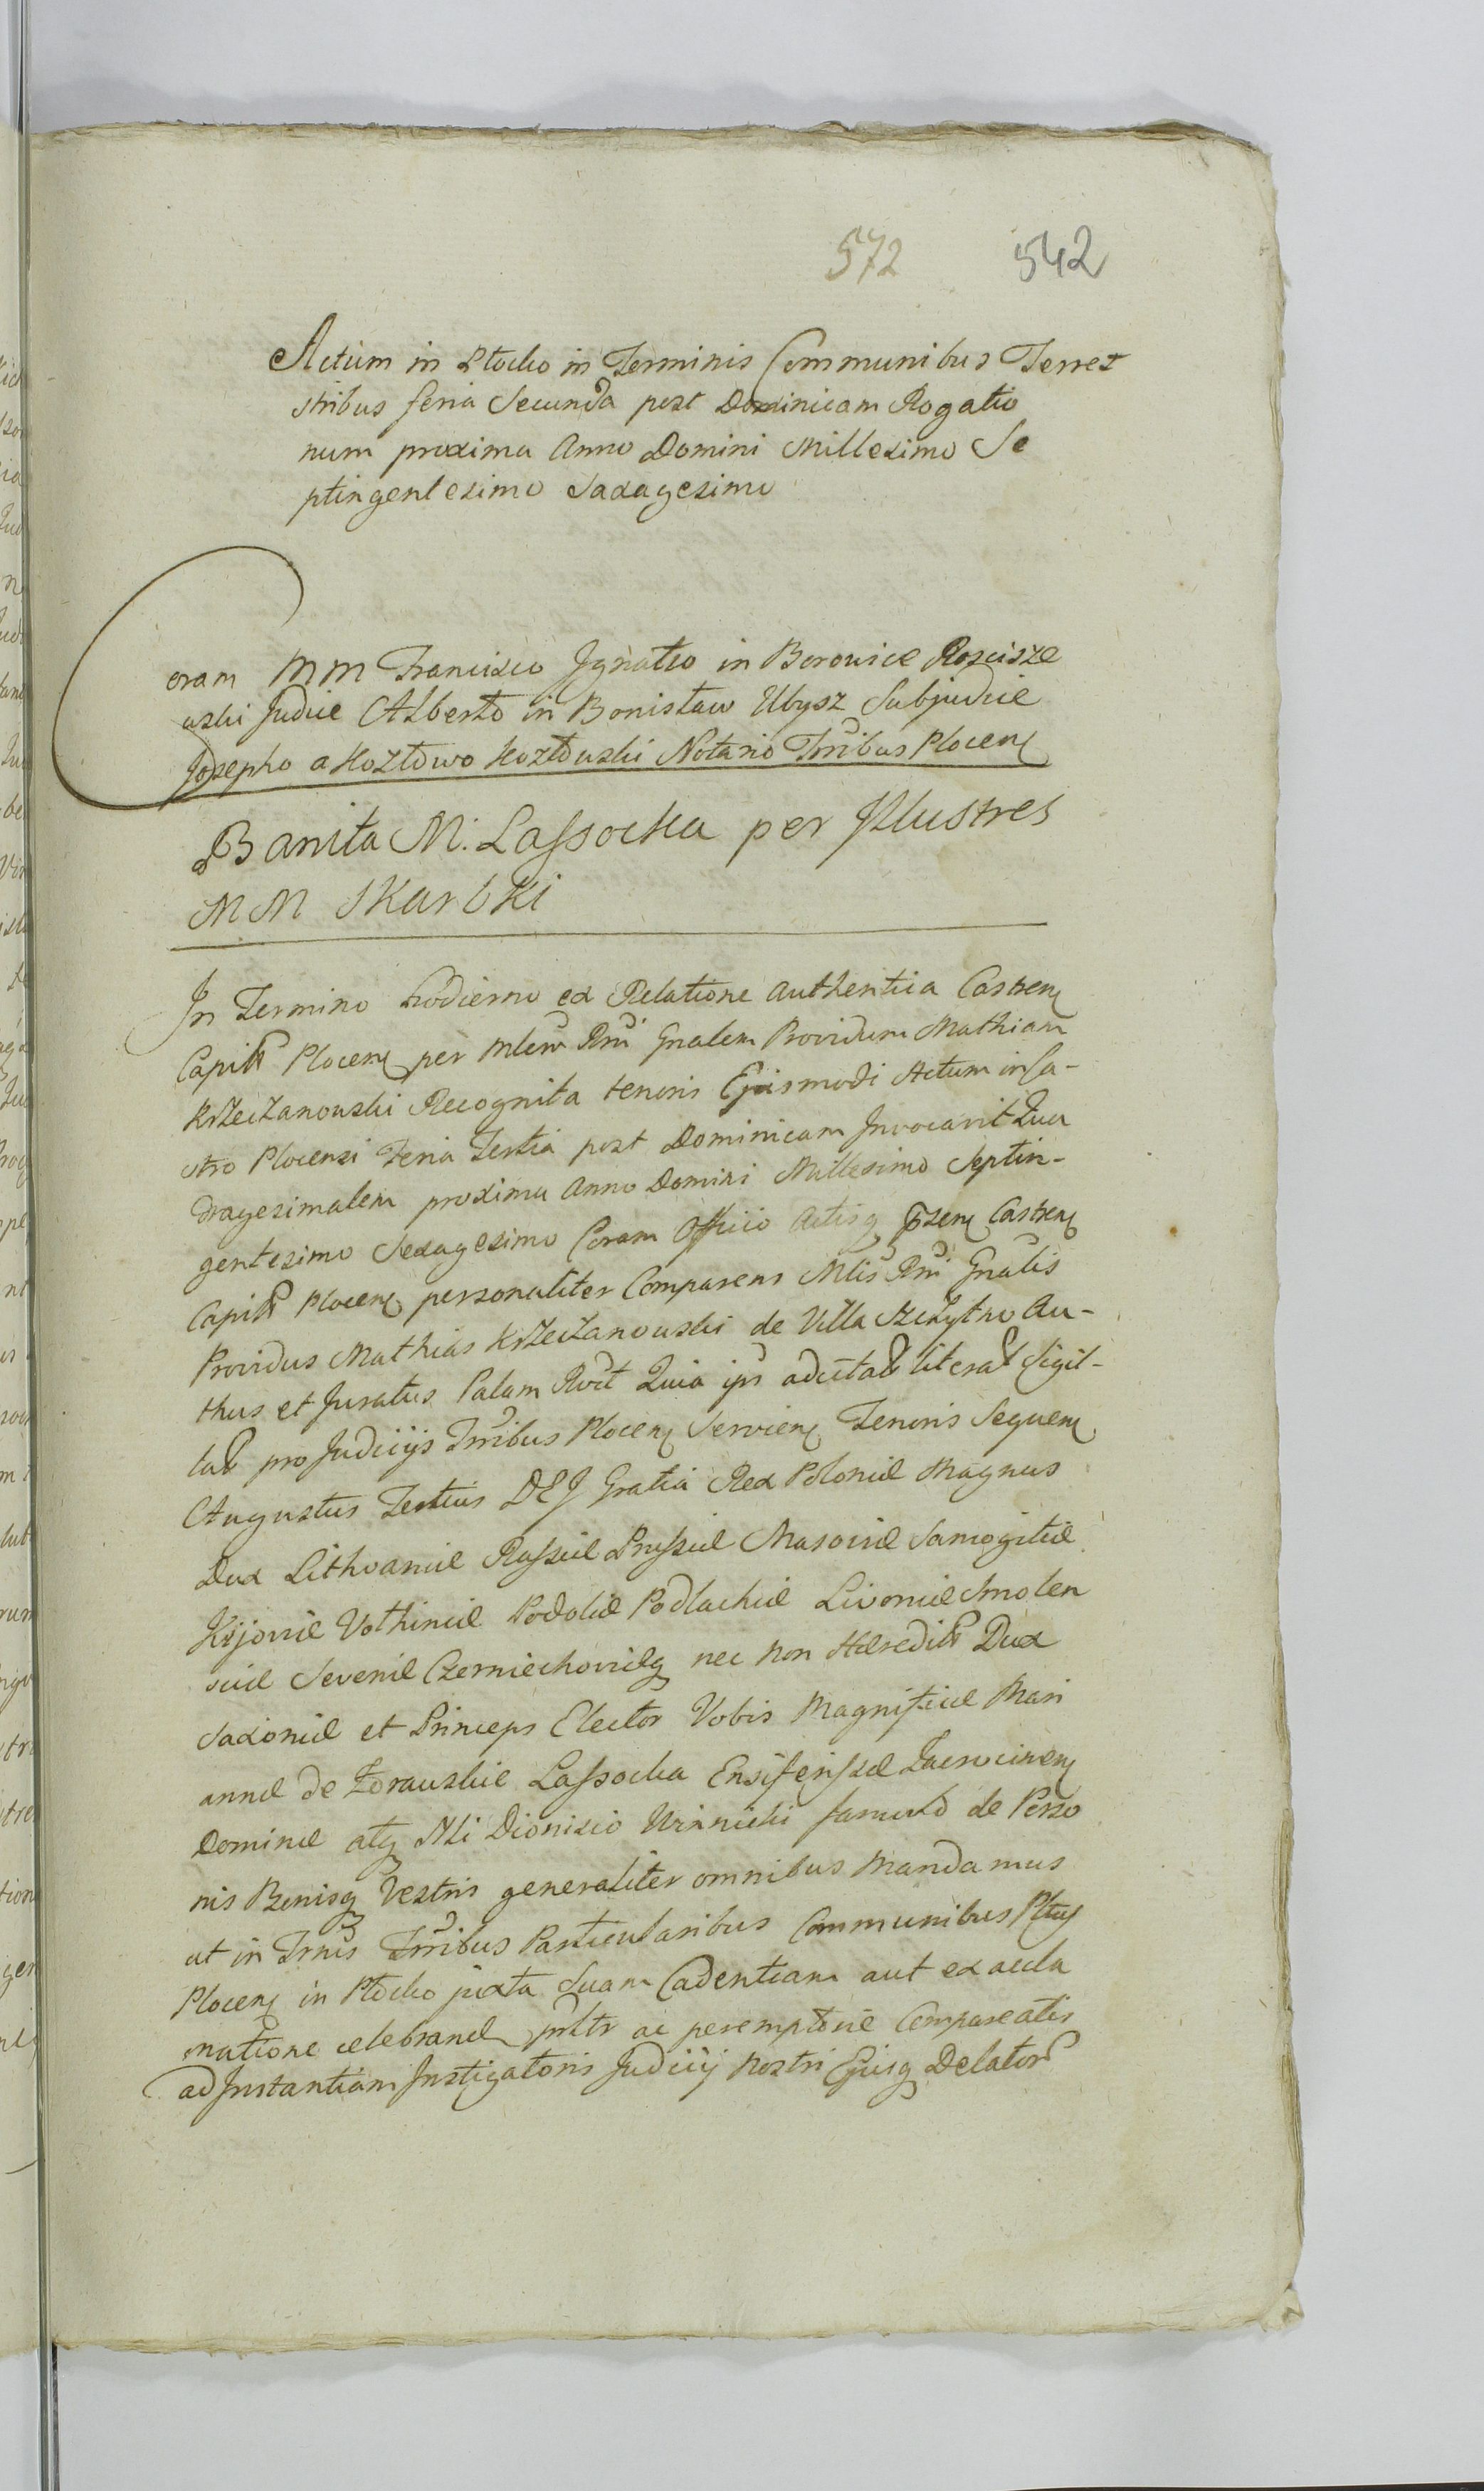 572 542
Actum in Płocko in Terminis Communibus Terres
stribus feria Secunda post Dominicam Rogatio
num proxima Anno Domini Millesimo Se
ptingentesimo Saxagesimo
Coram MM Francisco Ignatio in Borowice Roscisze
wski Judice Alberto in Bonisław Ubysz Subjudice
Josepho a Kozłowo Kozłowski Notario Trribus Plocen
Banita M. Lassocka per Illustres
MM Skarbki
In Termino hodierno ex Relatione Authentica Castren
Capitt Plocen per Mlem Rni Gnalem Providum Mathiam
Krzeczanowski Recognita tenoris Ejusmodi Actum in Ca-
stro Plocensi Feria Tertia post Dominicam Invocavit Qua
dragesimalem proxima Anno Domini Millesimo Septin-
gentesimo Sexagesimo Coram Officio Actisq pzen Castren
Capitt Plocen personaliter Comparens Mlis Rni Gnalis
Providus Mathias Krzeczanowski de Villa Szczytno Au-
thus et Juratus Palam Rvit Quia ips adcitatt literatt Sigil-
latt pro Judicijs Trribus Plocen Servien Tenoris Sequen
Augustus Tertius DEJ Gratia Rex Poloniæ Magnus
Dux Lithvaniæ Russiæ Prussiæ Masoviæ Samogitiæ
Kijoviæ Volhiniæ Podoliæ Podlachiæ Livoniæ Smolen
sciæ Seveniæ Czerniechoviæq nec non Hæreditt Dux
Saxoniæ et Princeps Elector Vobis Magnificæ Mari
annæ de Zdrauskie Lassocka Ensiferissæ Zacrocimen
Dominæ atq Nli Dionisio Winnicki famulo de Perso
nis Bonisq Vestris generaliter omnibus Mandamus
ut in Trnis Trribus Particularibus Communibus Pttus
Plocen in Płocko juxta Suam Cadentiam aut ex accla
matione celebrand psltr ac peremptorie Compareatis
ad Instantiam Instigatoris Judicij Nostri Ejusq Delatort